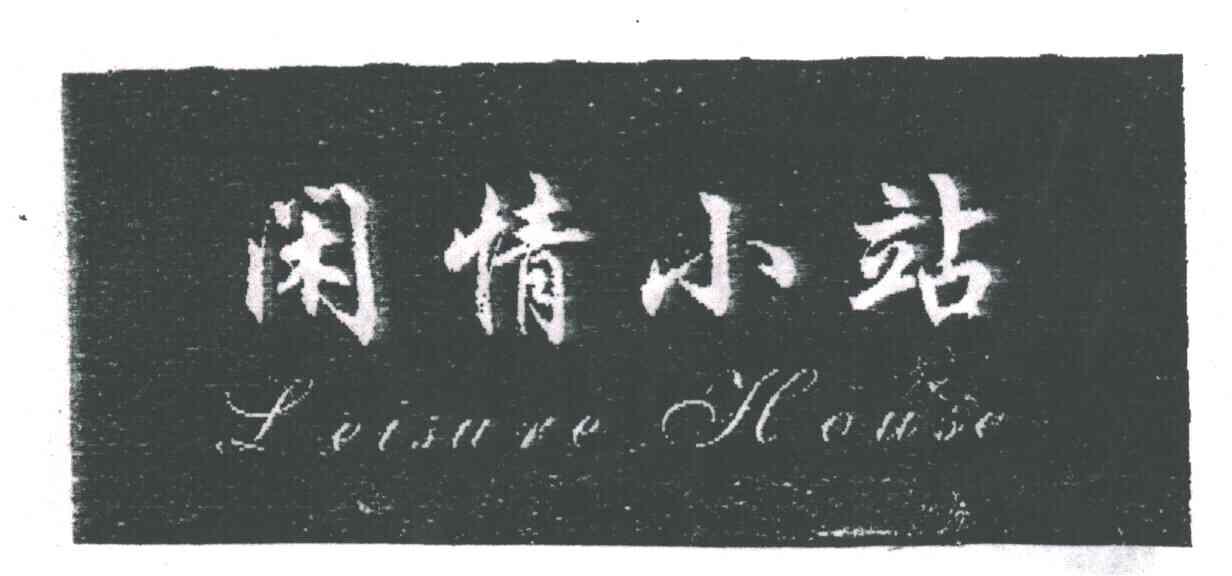 闲情小站
Leisure House